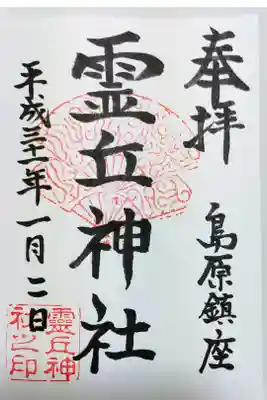 奉拝
島原鎮座
霊丘神社
平成三十一年一月二日
靈丘神
社之印